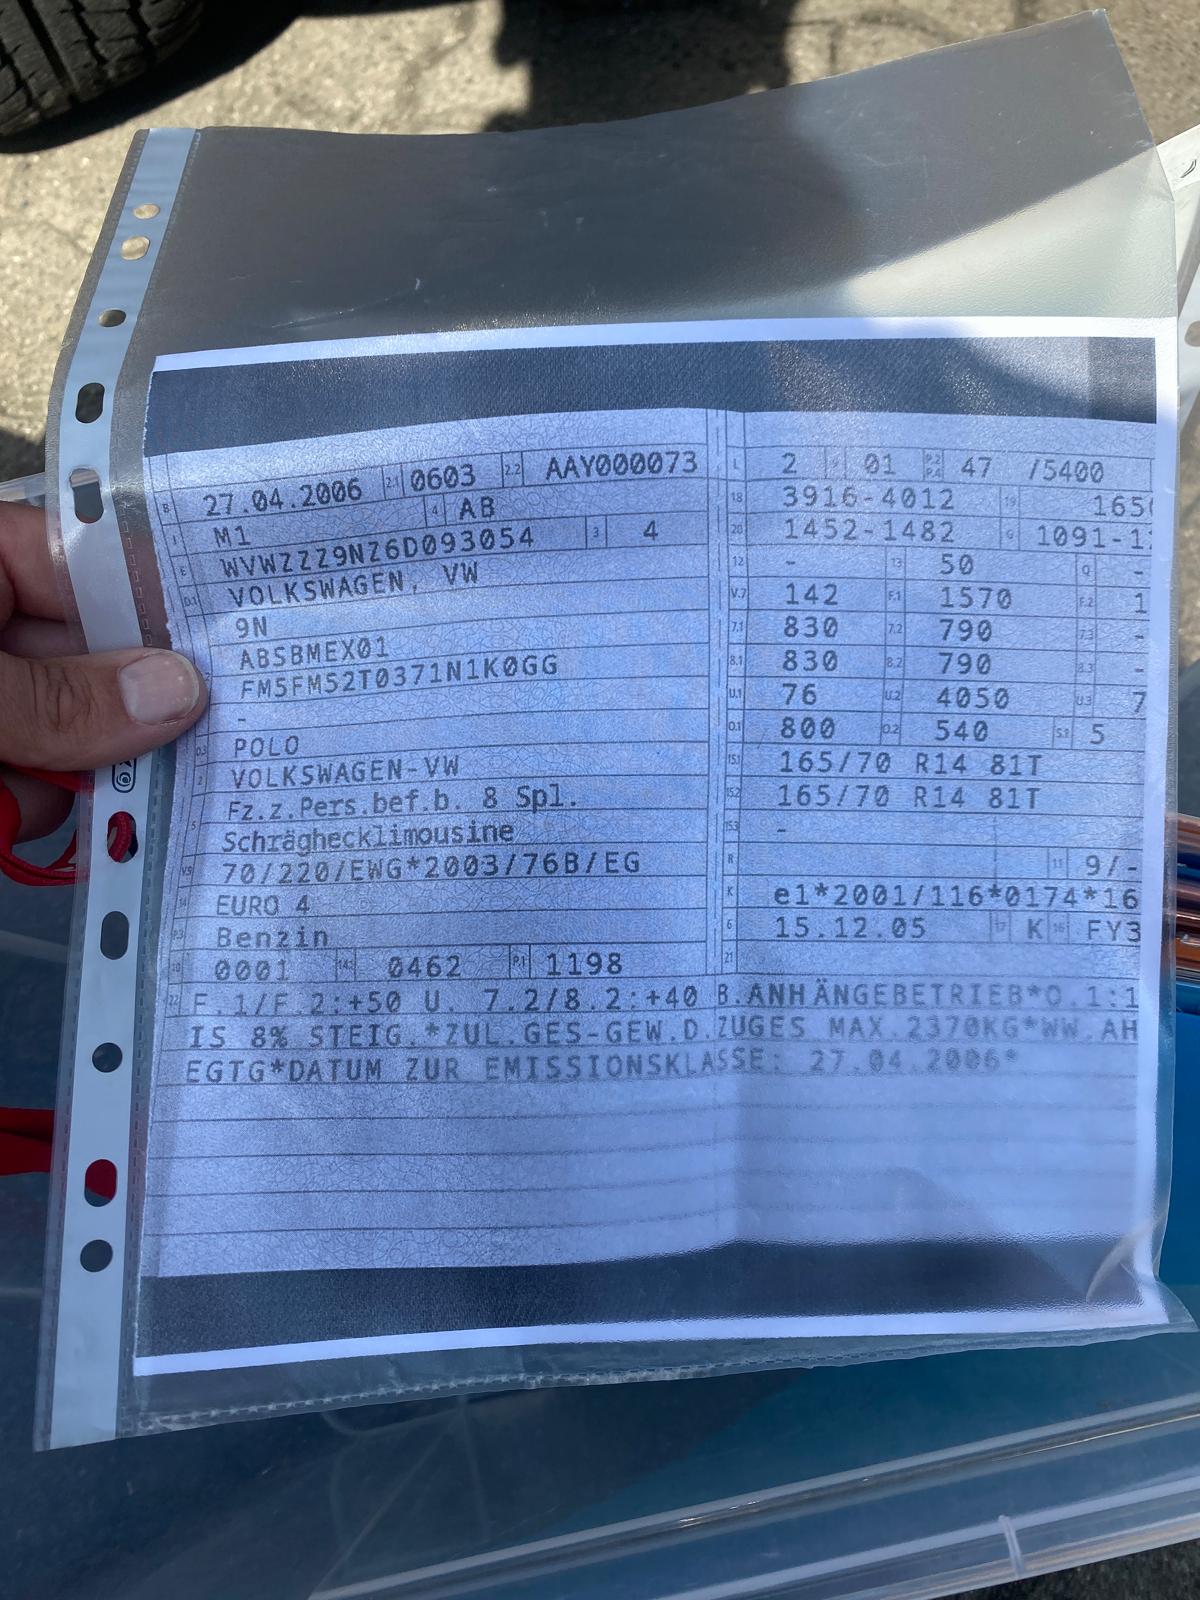 B 27.04.2006 2.1 0603 2.2 AAY000073
J M1 4 AB
E WVWZZZ9NZ6D093054 3 4
D.1 VOLKSWAGEN, VW
9N
ABSBMEX01
FM5FM52T0371N1K0GG
-
D.3 POLO
2 VOLKSWAGEN-VW
5 Fz.z.Pers.bef.b. 8 Spl.
Schräghecklimousine
V.9 70/220/EWG*2003/76B/EG
14 EURO 4
P.3 Benzin
10 0001 14.1 0462 P.1 1198
L 2 9 01 P.2 P.4 47 /5400
18 3916-4012 19 165
20 1452-1482 G 1091-1
12 - 13 50 Q -
V.7 142 F.1 1570 F.2 1
7.1 830 7.2 790 7.3 -
8.1 830 8.2 790 8.3 -
U.1 76 U.2 4050 U.3 7
O.1 800 O.2 540 S.1 5
15.1 165/70 R14 81T
15.2 165/70 R14 81T
15.3 -
R 11 9/-
K e1*2001/116*0174*16
6 15.12.05 17 K 16 FY3
21
22 F.1/F.2:+50 U. 7.2/8.2:+40 B.ANHÄNGEBETRIEB*O.1:1
IS 8% STEIG.*ZUL.GES-GEW.D.ZUGES MAX.2370KG*WW.AH
EGTG*DATUM ZUR EMISSIONSKLASSE: 27.04.2006*